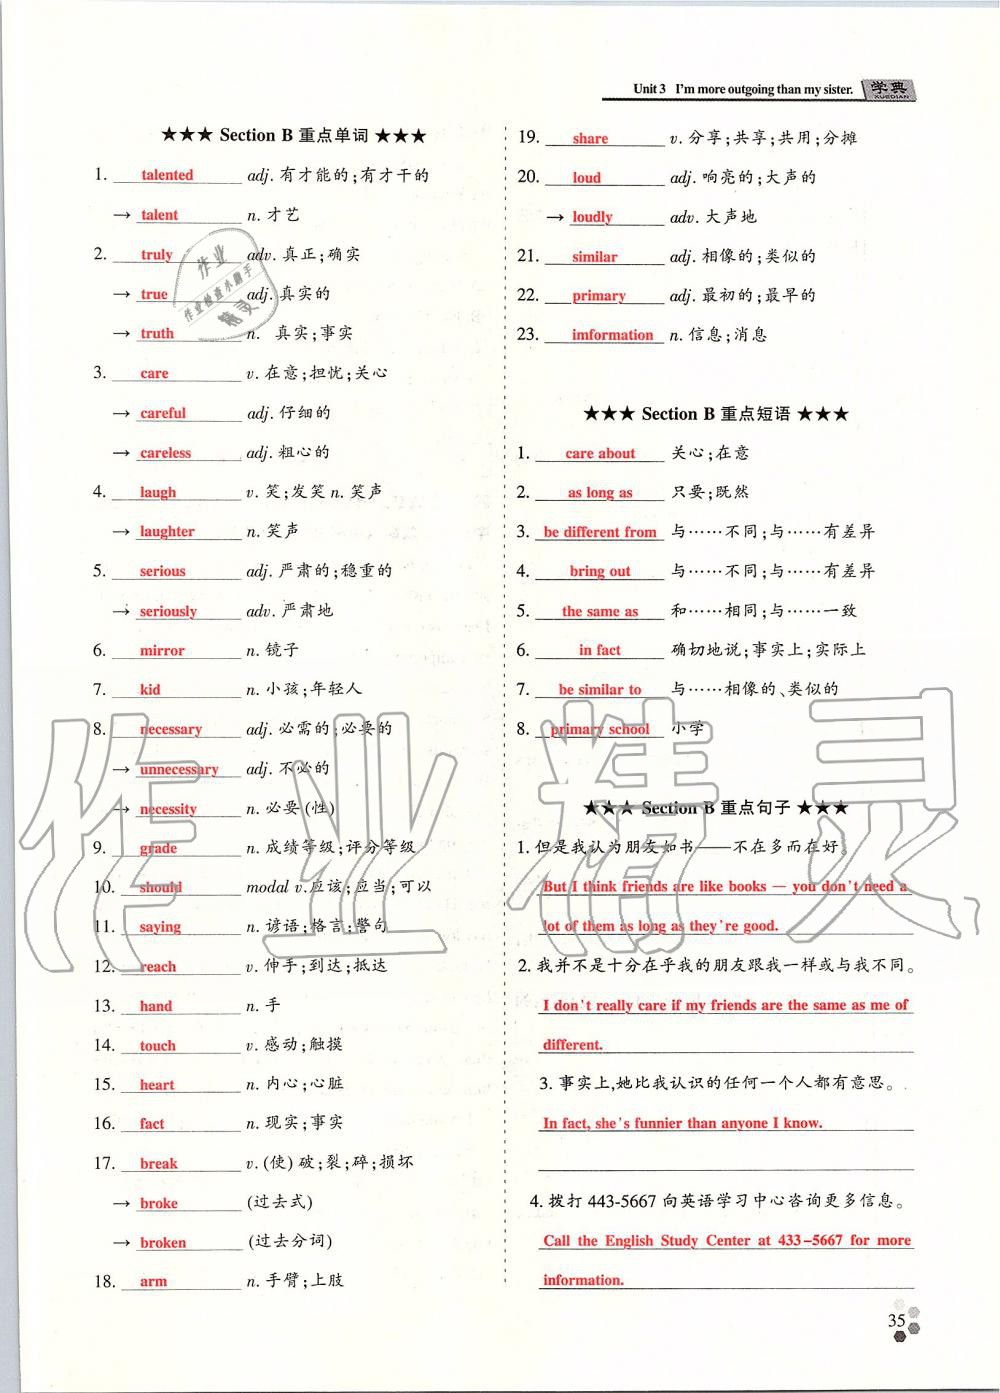 Unit 3 I'm more outgoing than my sister.
学典
XUEDIAN
★★★ Section B 重点单词 ★★★
1. talented adj. 有才能的;有才干的
→ talent n. 才艺
2. truly adv. 真正;确实
→ true adj. 真实的
→ truth n. 真实;事实
3. care v. 在意;担忧;关心
→ careful adj. 仔细的
→ careless adj. 粗心的
4. laugh v. 笑;发笑 n. 笑声
→ laughter n. 笑声
5. serious adj. 严肃的;稳重的
→ seriously adv. 严肃地
6. mirror n. 镜子
7. kid n. 小孩;年轻人
8. necessary adj. 必需的;必要的
→ unnecessary adj. 不必的
→ necessity n. 必要(性)
9. grade n. 成绩等级;评分等级
10. should modal v. 应该;应当;可以
11. saying n. 谚语;格言;警句
12. reach v. 伸手;到达;抵达
13. hand n. 手
14. touch v. 感动;触摸
15. heart n. 内心;心脏
16. fact n. 现实;事实
17. break v. (使)破;裂;碎;损坏
→ broke (过去式)
→ broken (过去分词)
18. arm n. 手臂;上肢
19. share v. 分享;共享;共用;分摊
20. loud adj. 响亮的;大声的
→ loudly adv. 大声地
21. similar adj. 相像的;类似的
22. primary adj. 最初的;最早的
23. imformation n. 信息;消息
★★★ Section B 重点短语 ★★★
1. care about 关心;在意
2. as long as 只要;既然
3. be different from 与……不同;与……有差异
4. bring out 与……不同;与……有差异
5. the same as 和……相同;与……一致
6. in fact 确切地说;事实上;实际上
7. be similar to 与……相像的、类似的
8. primary school 小学
★★★ Section B 重点句子 ★★★
1. 但是我认为朋友如书——不在多而在好。
But I think friends are like books — you don't need a
lot of them as long as they're good.
2. 我并不是十分在乎我的朋友跟我一样或与我不同。
I don't really care if my friends are the same as me of
different.
3. 事实上,她比我认识的任何一个人都有意思。
In fact, she's funnier than anyone I know.
4. 拨打 443-5667 向英语学习中心咨询更多信息。
Call the English Study Center at 433-5667 for more
information.
35
作业
作业检查小助手
精灵
作业精灵